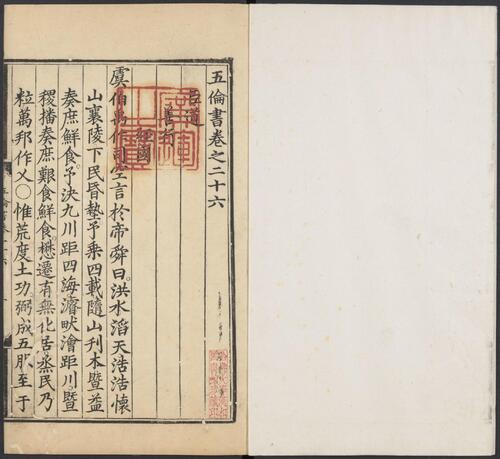 五倫書卷之二十六
臣道
善行
經國
虞伯禹作司空言於帝舜曰洪水滔天浩浩懷
山襄陵下民昏墊予乘四載隨山刋木暨益
奏庶鮮食予決九川距四海濬畎澮距川暨
稷播奏庶艱食鮮食懋遷有無化居烝民乃
粒萬邦作乂○惟荒度土功弼成五服至于